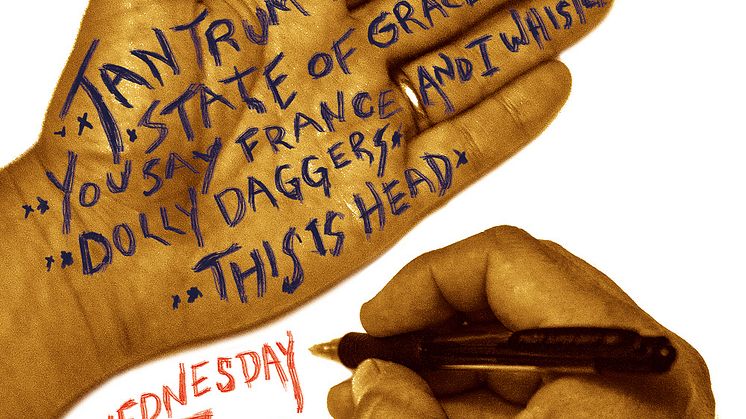 TANTRUM
STATE OF GRACE
YOU SAY FRANCE AND I WHISTLE
DOLLY DAGGERS
THIS IS HEAD
WEDNESDAY